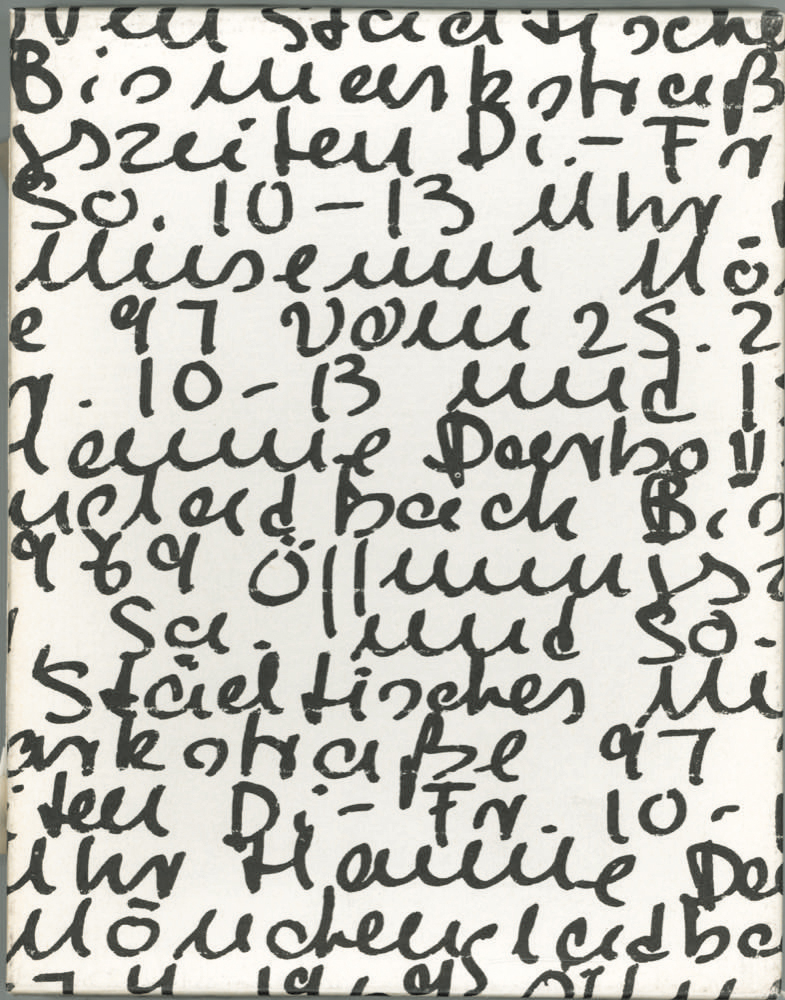 ven Städtische
Bismarkstraß
gszeiten Di.-Fr
So. 10-13 Uhr
Museum Mö
e 97 vom 25.2
r. 10-13 und 1
Hanne Darbov
ngladbach Bis
969 Öffnungsz
Sa. und So.
Städtisches Mu
arkstraße 97
iten Di.- Fr. 10-
Uhr Hanne Da
Mönchengladba
7.4.1969 Öffnu